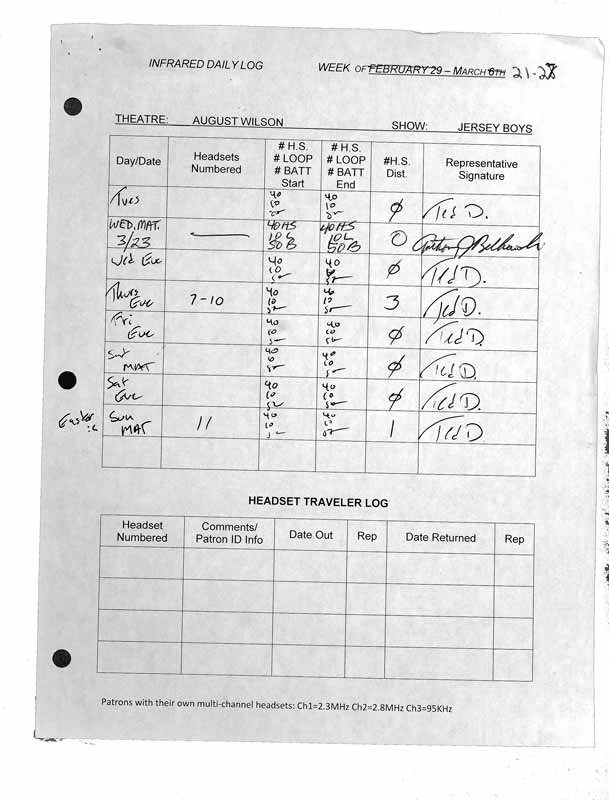 INFRARED DAILY LOG WEEK OF FEBRUARY 29 – MARCH 6TH 21-27
THEATRE: AUGUST WILSON SHOW: JERSEY BOYS
Day/Date Headsets Numbered # H.S. # LOOP # BATT Start # H.S. # LOOP # BATT End #H.S. Dist. Representative Signature
Tues 40 10 40 10 Ø Ted D.
WED. MAT. 3/23 — 40 HS 10 L 50 B 40 HS 10 L 50 B 0
Wed Eve 40 10 40 Ø Ted D.
Thurs Eve 7-10 40 10 10 3 Ted D.
Fri Eve 40 10 40 10 Ø Ted D.
Sat MAT 40 40 10 Ø Ted D.
Sat Eve 40 10 40 10 Ø Ted D.
Easter :c Sun MAT 11 40 10 40 10 1 Ted D
HEADSET TRAVELER LOG
Headset Numbered Comments/ Patron ID Info Date Out Rep Date Returned Rep
Patrons with their own multi-channel headsets: Ch1=2.3MHz Ch2=2.8MHz Ch3=95KHz